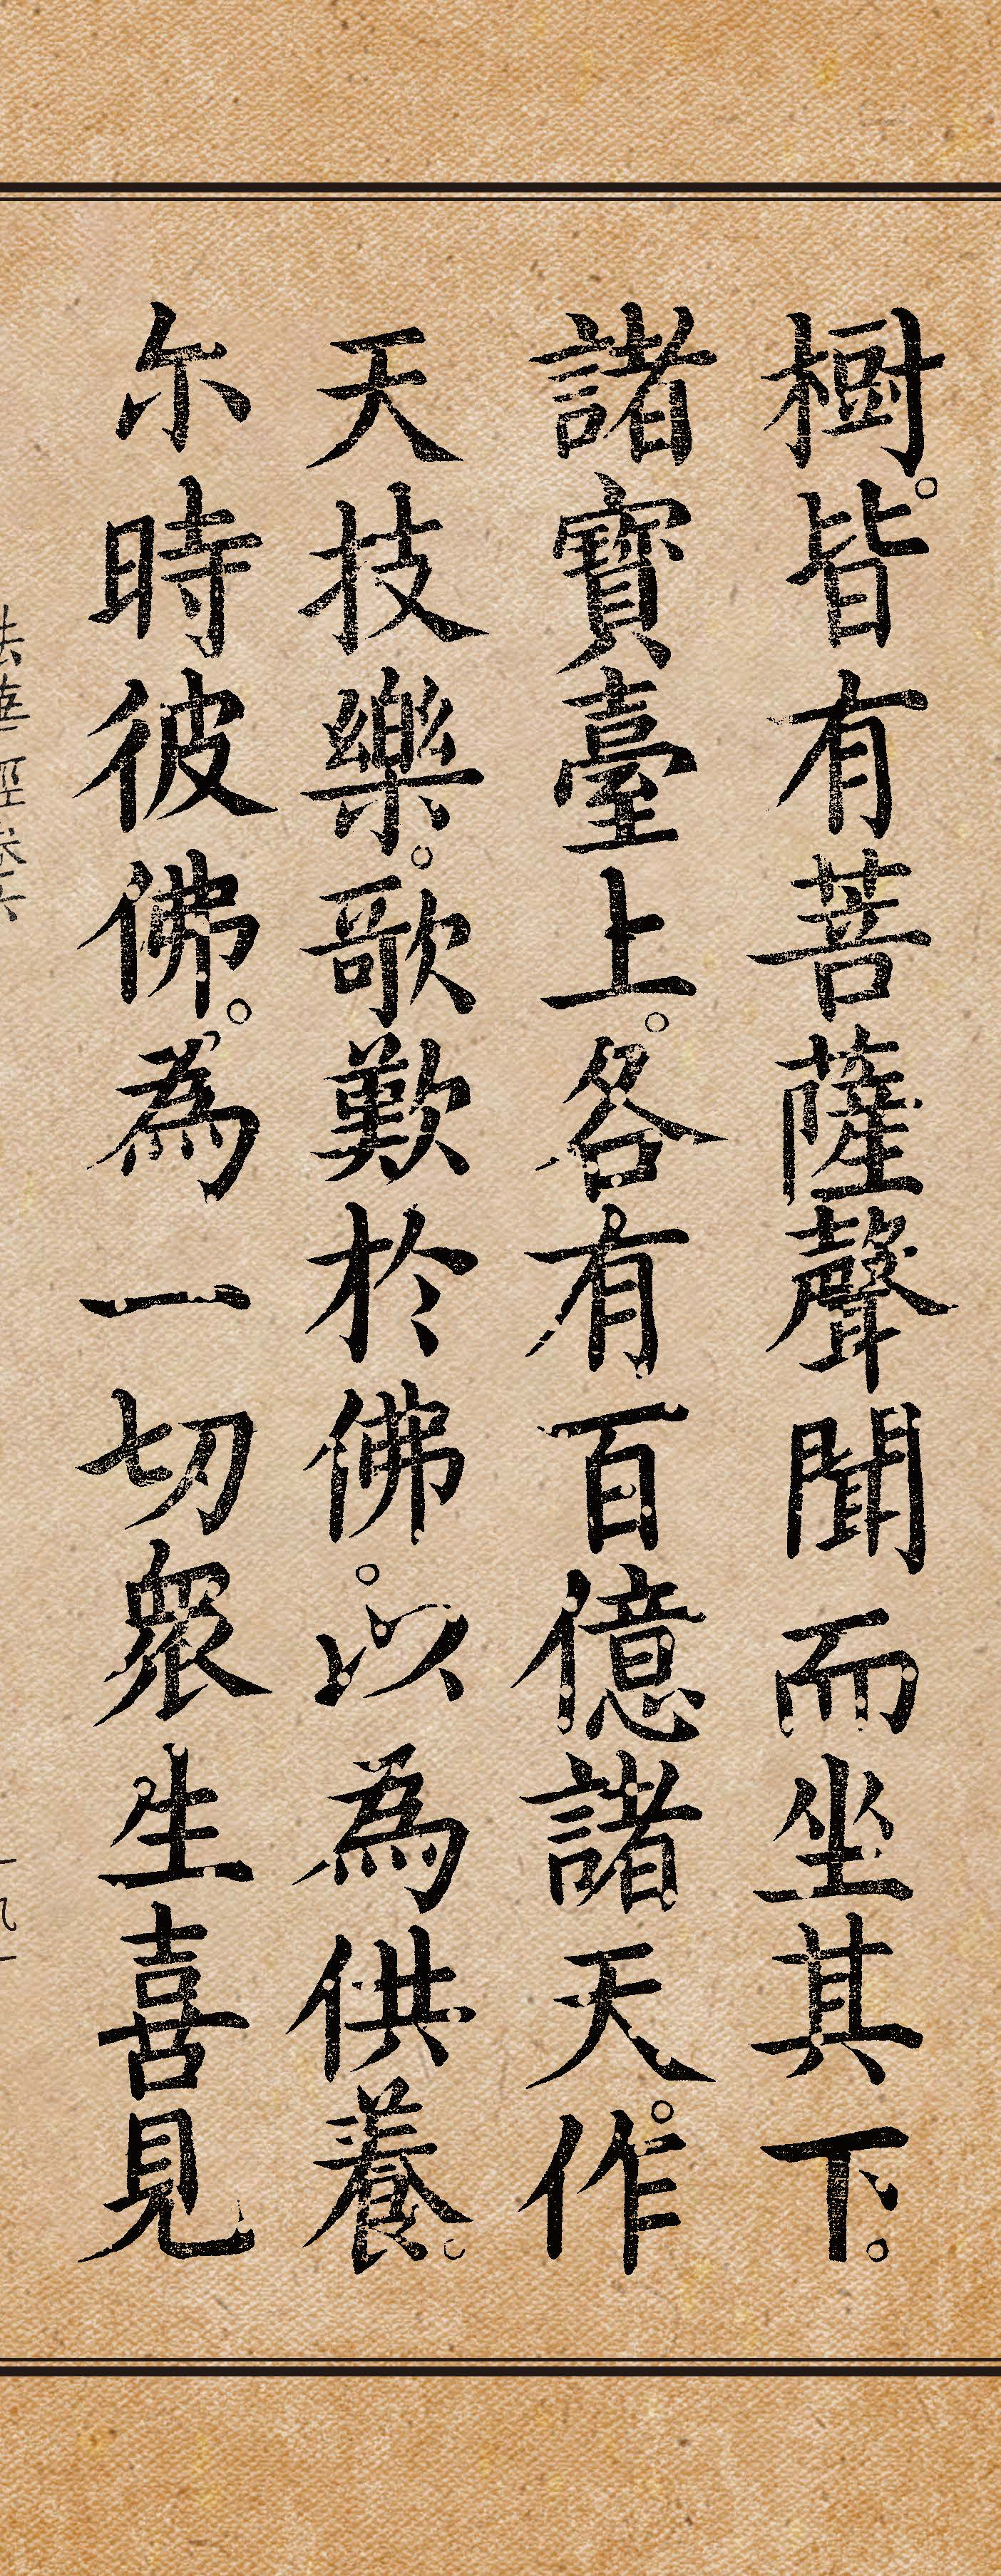 樹。皆有菩薩聲聞而坐其下。
諸寶臺上。各有百億諸天。作
天技樂。歌歎於佛。以為供養。
尔時彼佛。為一切眾生喜見
法華經卷六